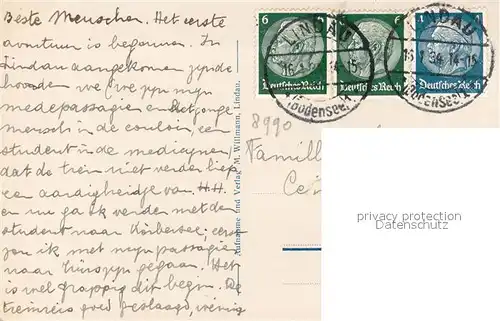 Beste Menschen. Het eerste
avontuur is begonnen. In
Lindau aangekomen zynde
hoorden we
medepassagier en het jonge
mensch in de couloir, een
student in de medicynen,
dat de trein niet verder liep
een aardigheidje van H.H.
en nu ga ik verder met de
student naar
ik met myn passagier
naar huis zyn gegaan. Het
is wel grappig dit begin. De
treinreis goed geslaagd, weinig
Aufnahme und Verlag M. Willmann, Lindau.
6
Deutsches Reich
6
Deutsches Reich
Deutsches Reich
LINDAU
(Bodensee)
LINDAU
(Bodensee)
8990
Famill
privacy protection
Datenschutz